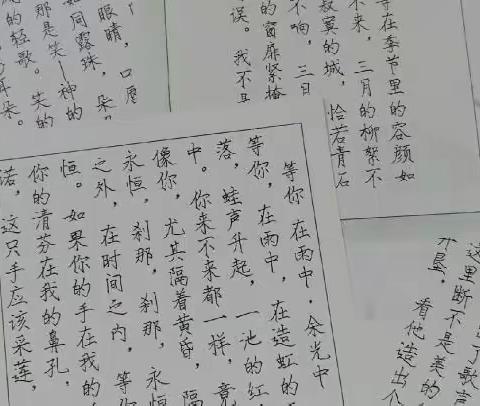 等在季节里的容颜如
不来，三月的柳絮不
寂寞的城，恰若青石
不响，三
的窗扉紧掩
误。我不
眼睛，口唇
如同露珠，朵
那是笑—神的
的轻歌。笑的
耳朵。
等你 在雨中·余光中
等你，在雨中，在造虹的
落，蛙声升起，一池的红
中。你来不来都一样，竟
像你，尤其隔着黄昏，隔
永恒，刹那，刹那，永恒
之外，在时间之内，等
恒。如果你的手在我的
你的清芬在我的鼻孔，
诺，这只手应该采莲，
了歌声
这里断不是美的
开垦，看他造出个